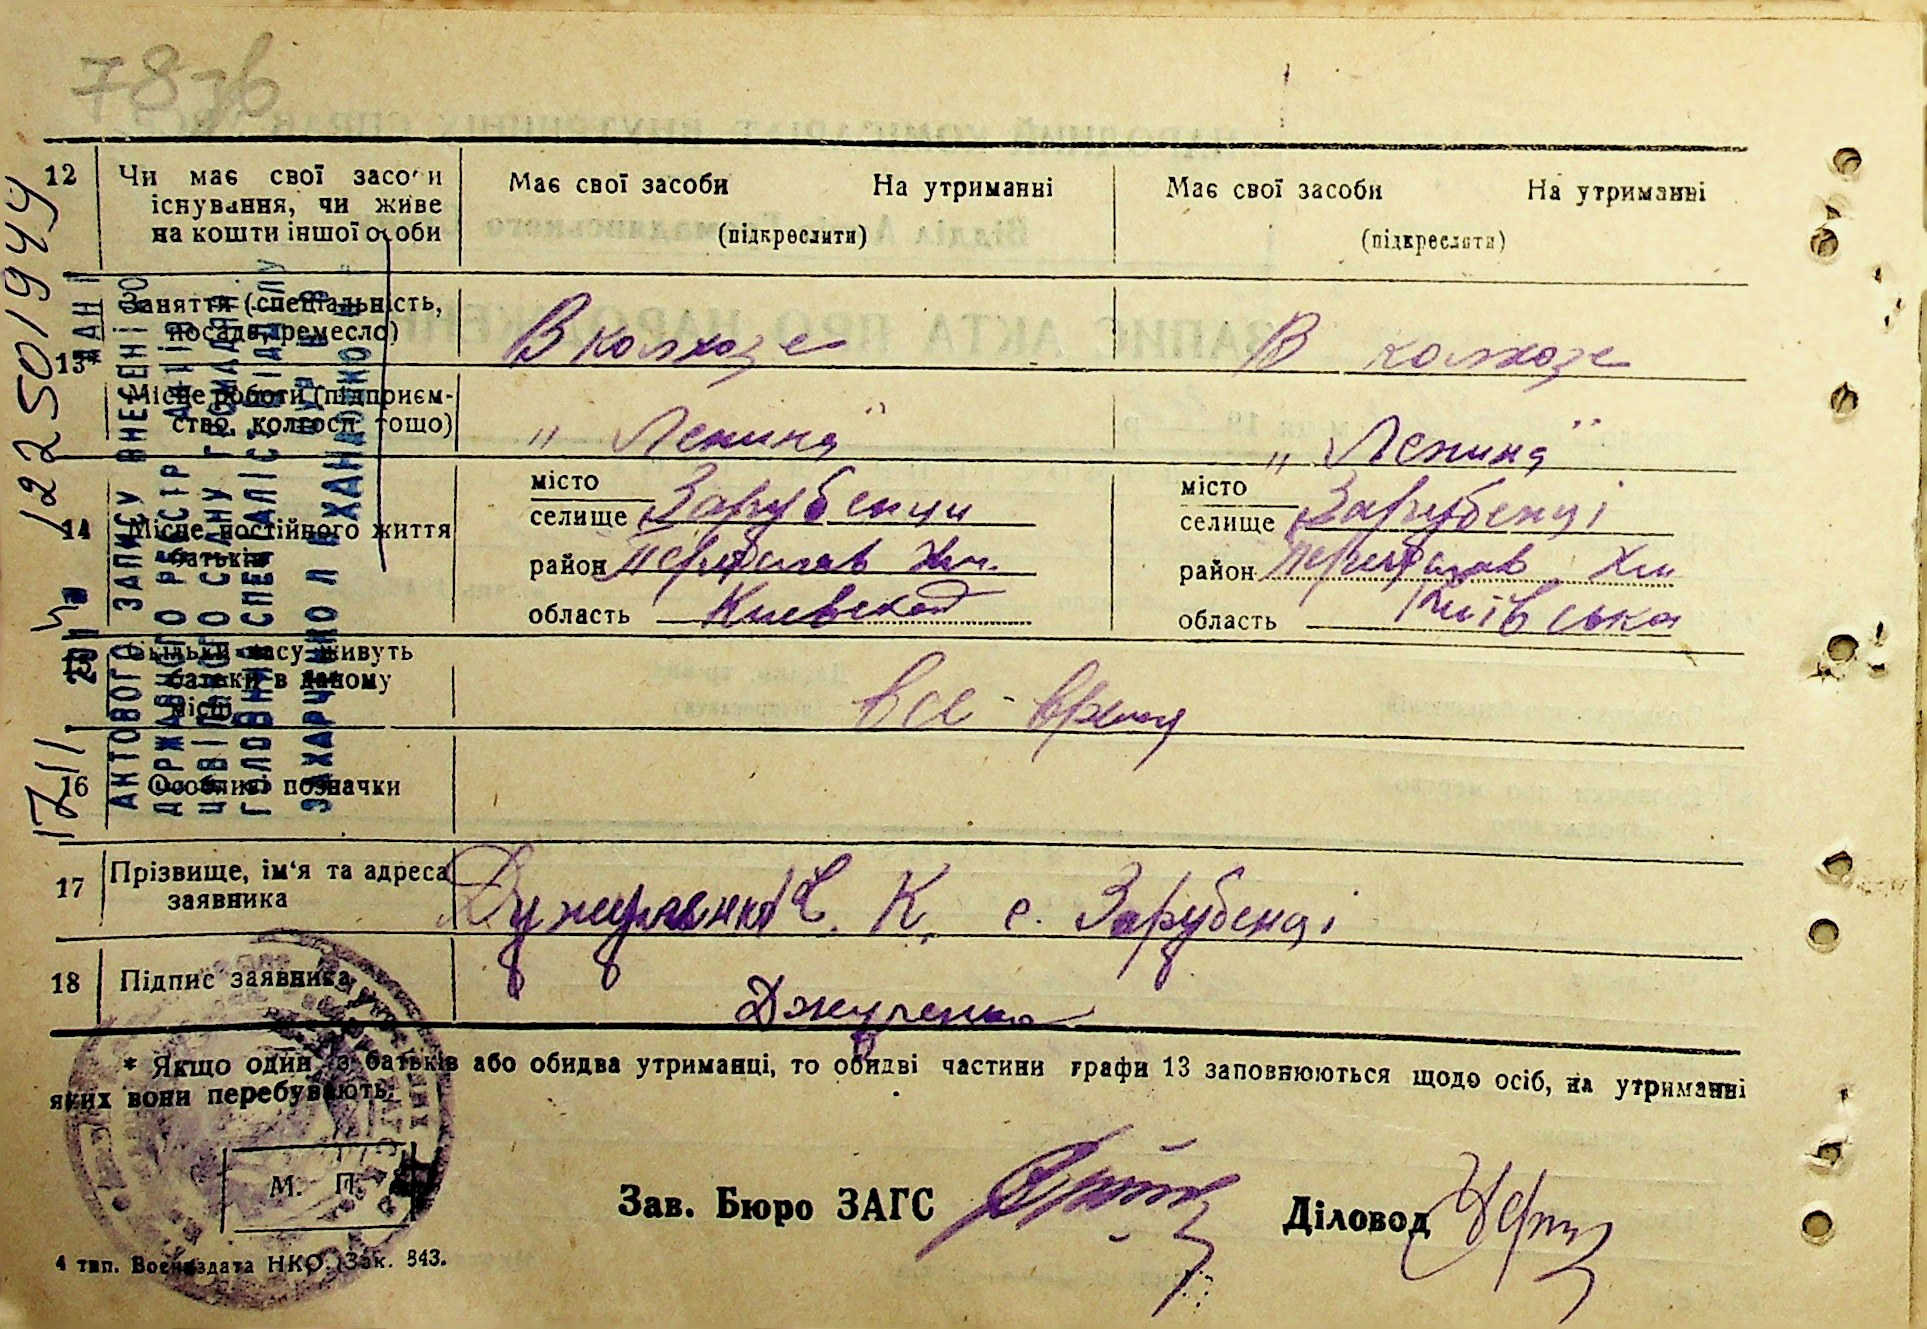 787б
12 Чи має свої засоби
існування, чи живе
на кошти іншої особи
Має свої засоби На утриманні
(підкреслити)
Має свої засоби На утриманні
(підкреслити)
13* Заняття (спеціальність,
посада, ремесло)
В колхозе
В колхозе
Місце роботи (підприєм-
ство, колгосп тощо)
„ Ленина"
„ Ленина"
14 Місце постійного життя
батьків
місто
селище Зарубенци
район Переяслав Хм.
область Киевская
місто
селище Зарубенці
район Переяслав Хм
область Київська
15 Скільки часу живуть
батьки в даному
місці
все - время
16 Особливі позначки
17 Прізвище, ім'я та адреса
заявника
К. с. Зарубенці
18 Підпис заявника
* Якщо один з батьків або обидва утриманці, то обидві частини графи 13 заповнюються щодо осіб, на утриманні
яких вони перебувають.
М. П.
Зав. Бюро ЗАГС
Діловод
4 тип. Воениздата НКО. Зак. 843.
12250 1944
АКТОВОГО ЗАПИСУ ВНЕСЕНІ ДО
ДЕРЖАВНОГО РЕЄСТР
ЦИВІЛЬНОГО СТАНУ ГРОМАДЯН
ГОЛОВНИЙ СПЕЦІАЛІСТ ВІДДІЛУ
ЗАХАРЧЕНКО Л